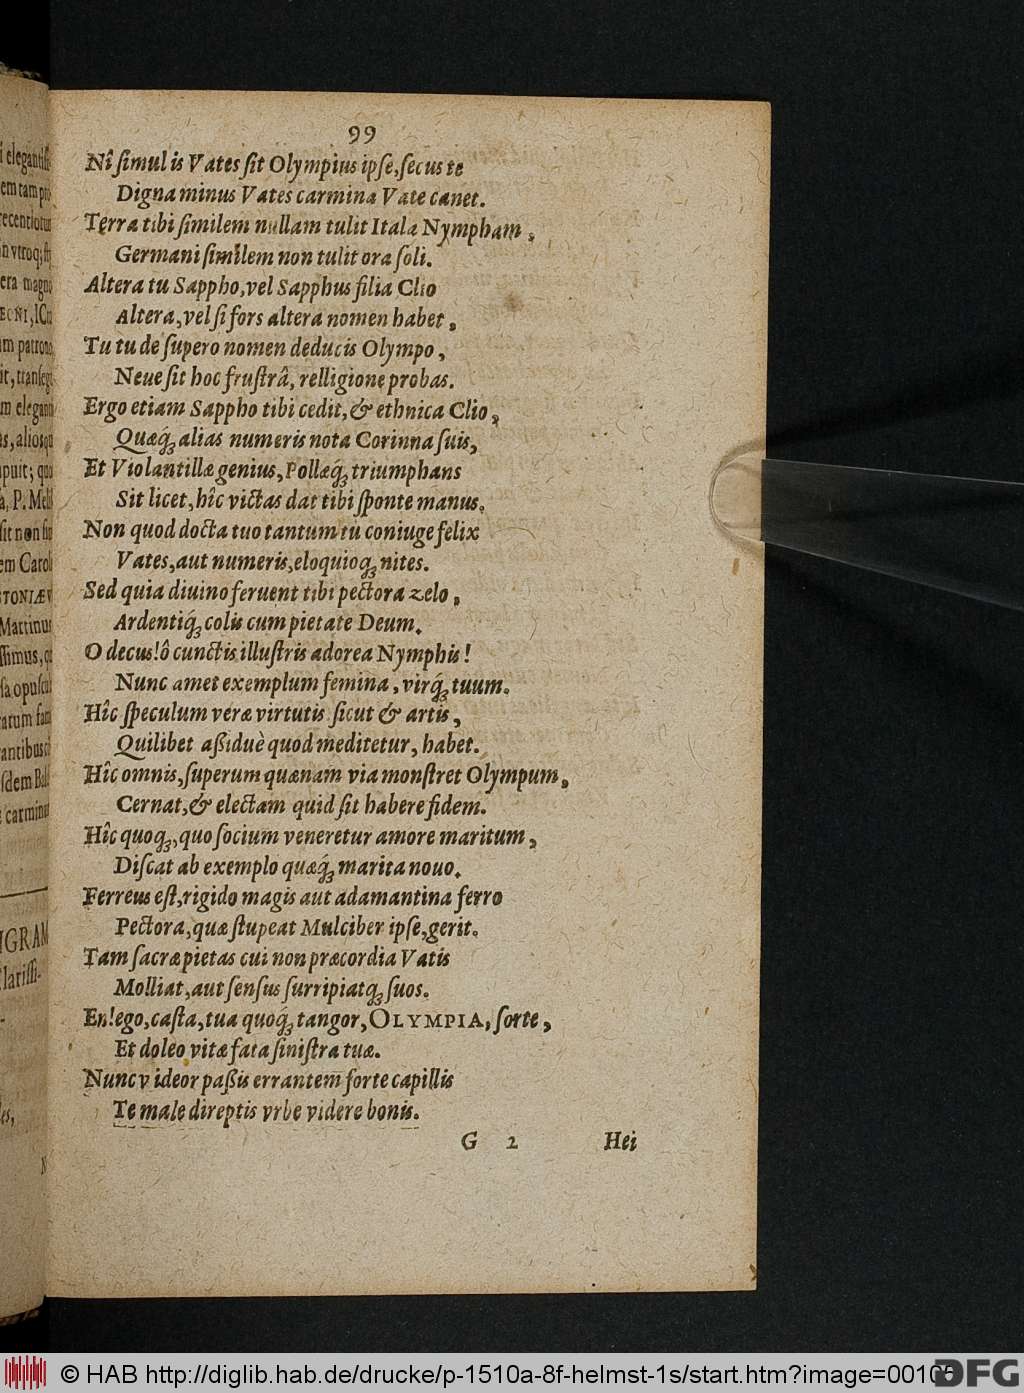 99
Nî ſimul is Vates ſit Olympius ipſe, ſecus te
Digna minus Vates carmina Vate canet.
Terra tibi ſimilem nullam tulit Itala Nympham,
Germani ſimilem non tulit ora ſoli.
Altera tu Sappho, vel Sapphus filia Clio
Altera, vel ſi fors altera nomen habet,
Tu tu de ſupero nomen deducis Olympo,
Neue ſit hoc fruſtrâ, relligione probas.
Ergo etiam Sappho tibi cedit, & ethnica Clio,
Quæq́ꝫ alias numeris nota Corinna ſuis,
Et Violantillæ genius, Pollæq́ꝫ triumphans
Sit licet, hîc victas dat tibi ſponte manus.
Non quod docta tuo tantum tu coniuge felix
Vates, aut numeris, eloquioqꝫ nites.
Sed quia diuino feruent tibi pectora zelo,
Ardentiq́ꝫ colis cum pietate Deum.
O decus! ô cunctis illuſtris adorea Nymphis!
Nunc amet exemplum femina, virq́ꝫ tuum.
Hîc ſpeculum veræ virtutis ſicut & artis,
Quilibet aßiduè quod meditetur, habet.
Hîc omnis, ſuperum quænam via monſtret Olympum,
Cernat, & electam quid ſit habere fidem.
Hîc quoqꝫ, quo ſocium veneretur amore maritum,
Diſcat ab exemplo quæq́ꝫ marita nouo.
Ferreus eſt, rigido magis aut adamantina ferro
Pectora, quæ ſtupeat Mulciber ipſe, gerit.
Tam ſacræ pietas cui non præcordia Vatis
Molliat, aut ſenſus ſurripiatqꝫ ſuos.
En! ego, caſta, tua quoq́ꝫ tangor, OLYMPIA, ſorte,
Et doleo vitæ fata ſiniſtra tuæ.
Nunc videor paßis errantem forte capillis
Te male direptis vrbe videre bonis.
G 2 Hei
© HAB http://diglib.hab.de/drucke/p-1510a-8f-helmst-1s/start.htm?image=00105
DFG